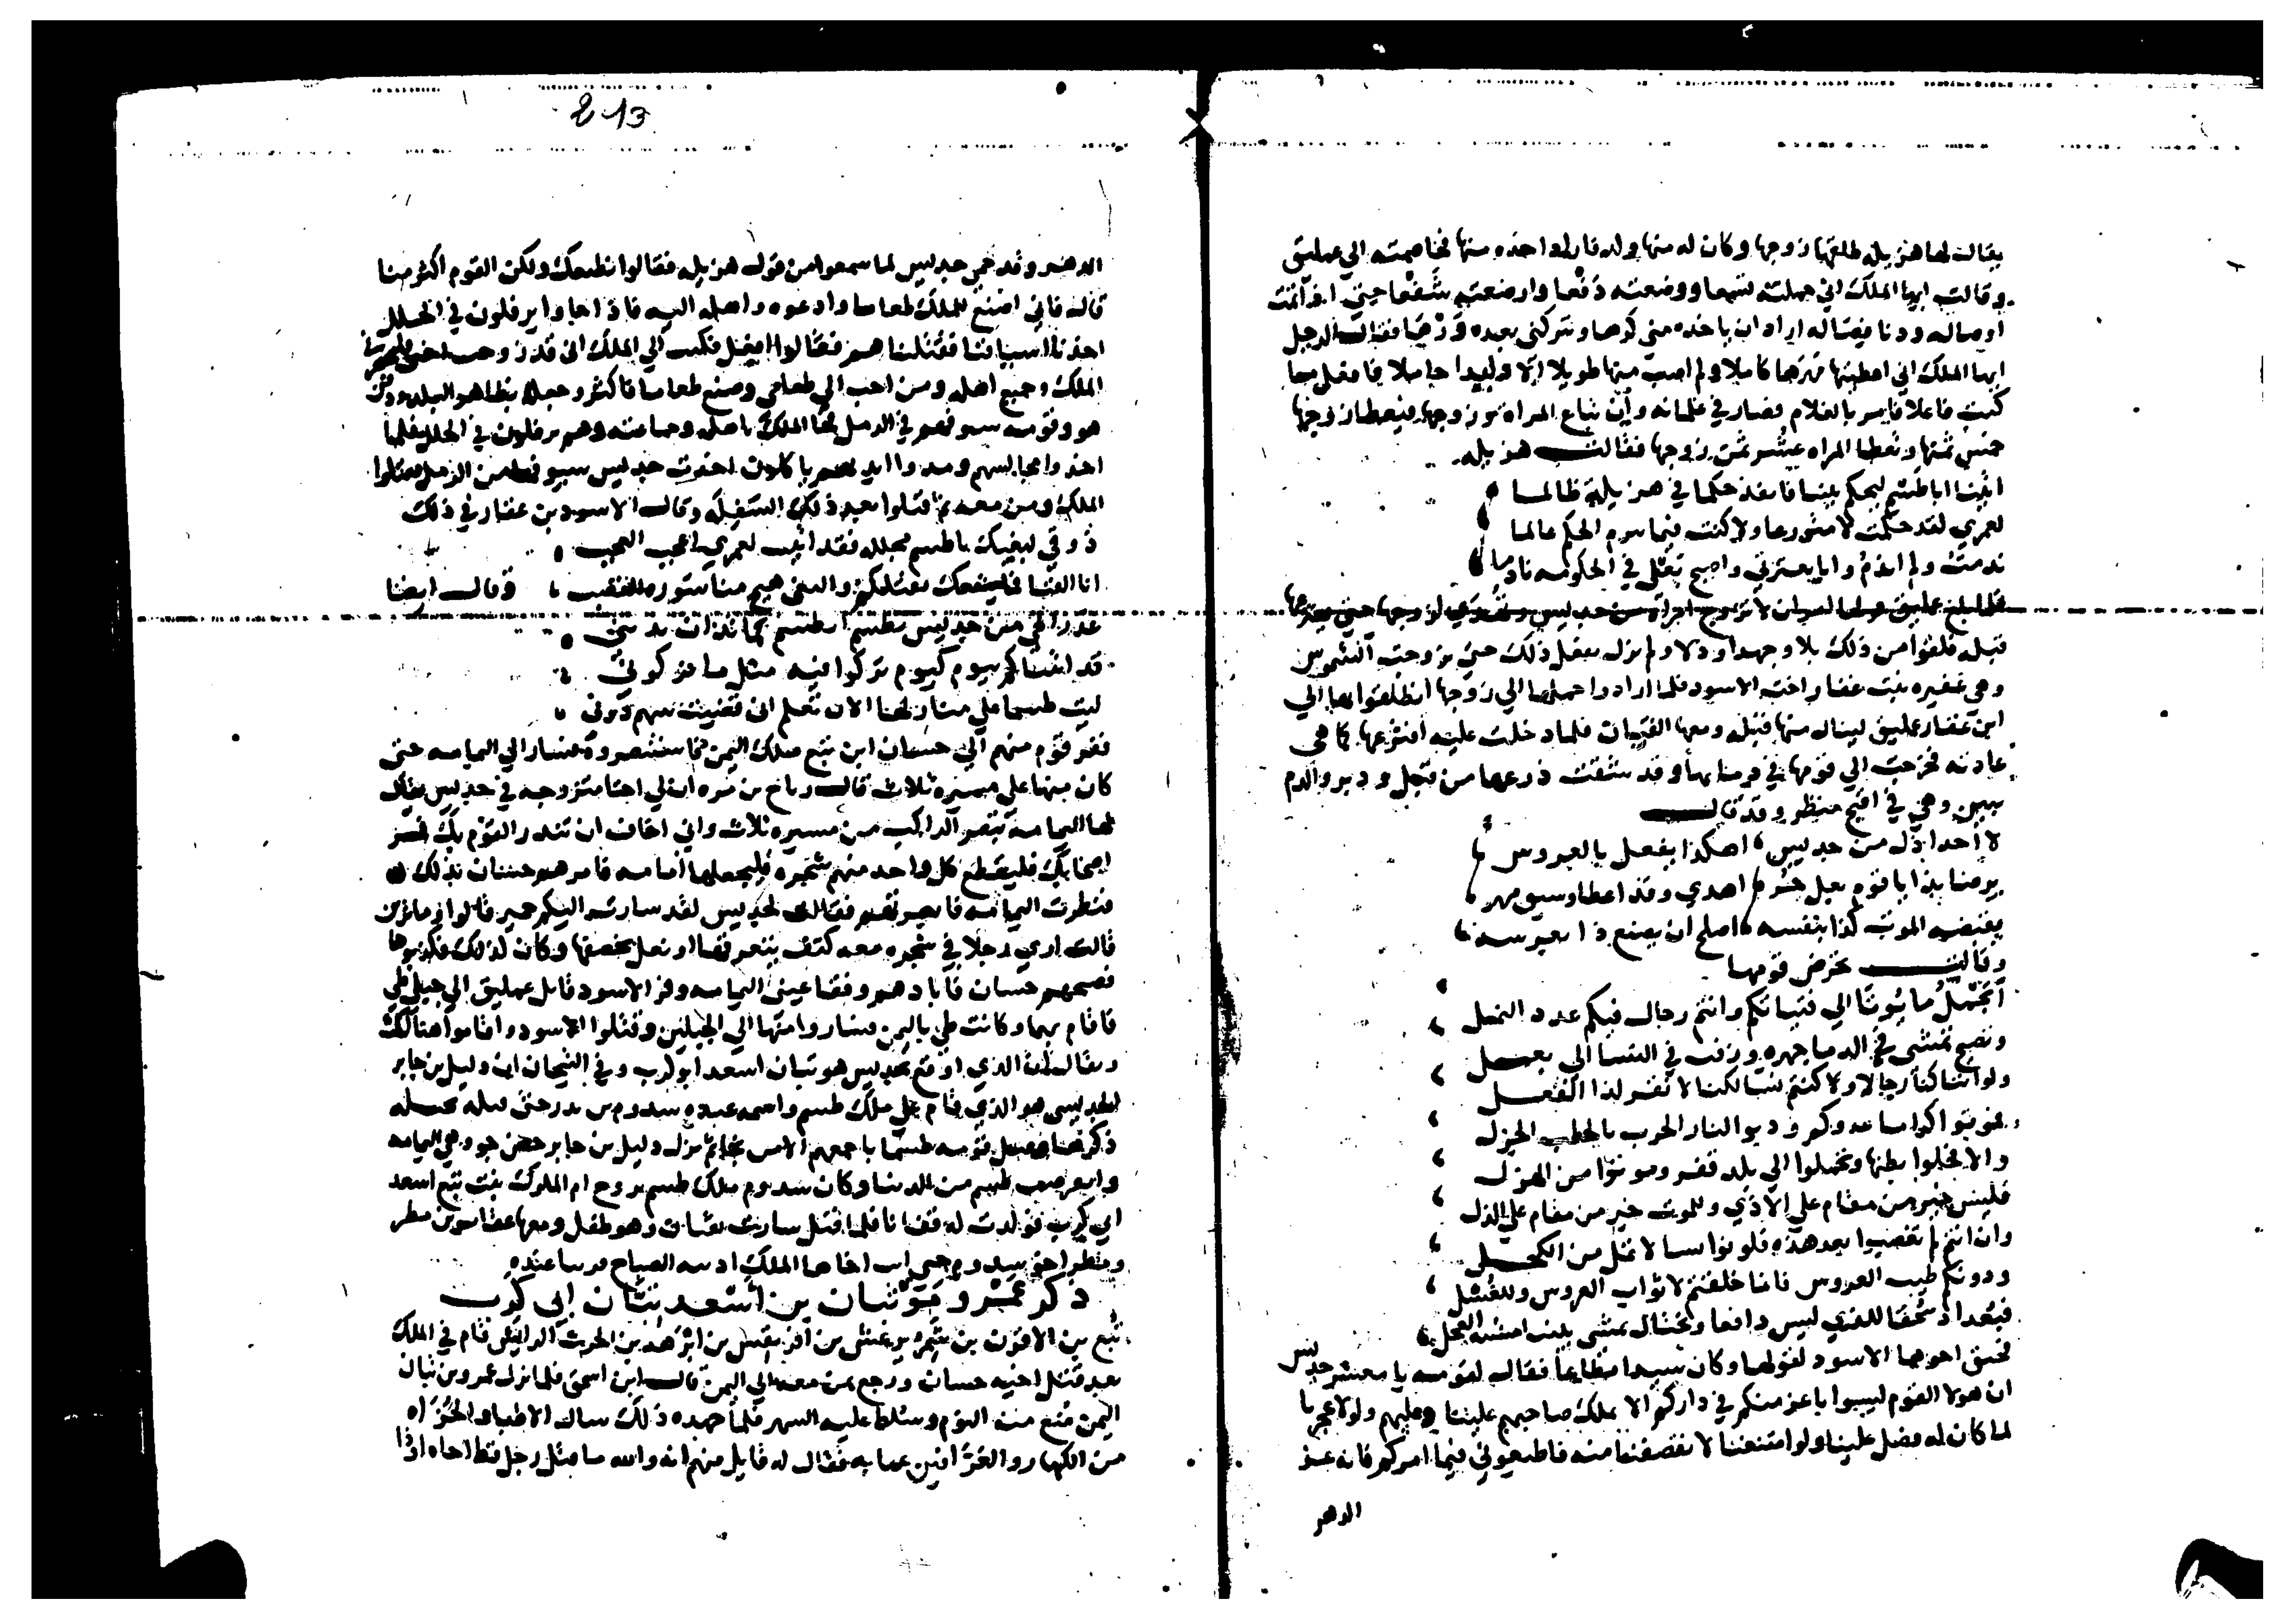 يقال لها هزيله طلقها زوجها وكان له منها ولد فاراد اخذه منها فخاصمته الي عمليق
وقالت ايها الملك اني حملته تسعا ووضعته دفعا وارضعته شفعا حتي اذا تمت
اوصاله ودنا فصاله اراد ان ياخذه مني كرها ويتركني بعده ورها فقال الرجل
ايها الملك اني اعطيتها مهرها كاملا ولم اصب منها طويلا الا وليدا خاملا فافعل ما
كنت فاعلا فامر بالغلام فصار في غلمانه وأن تباع المراه وزوجها فيعطا زوجها
خمس ثمنها وتعطا المراه عشر ثمن زوجها فقالت هزيله
اتينا اخا طسم ليحكم بيننا فانفذ حكما في هزيلة ظالما
لعمري لقد حكمت لا متورعا ولا كنت فيما يبرم الحكم عالما
ندمت ولم اندم واصبح بعلي في الحكومه نادما
فلما بلغ عمليق قولها امر ان لا تزوج امراة من جديس وتهدي لزوجها حتي يفترعها
قبله فلقوا من ذلك بلا وجهدا وذلا ولم يزل يفعل ذلك حتي تزوجت الشموس
وهي عفيره بنت عفار اخت الاسود فلما ارادوا حملها الي زوجها انطلقوا بها الي
عمليق لينال منها قبله ومعها الفتيات فلما دخلت عليه افترعها كما هي
عادته فخرجت الي قومها في دمايها وقد شقت درعها من قبل ودبر والدم
يبين وهي في اقبح منظر وقد قالت
لا احد اذل من جديس اهكذا يفعل بالعروس
يرضا بذا يا قوم بعل حر اهدي وقد اعطا وسيق مهر
يقبضه الموت كذا بنفسه اصلح ان يصنع ذا بعرسه
وقالت تحرض قومها
أيجمل ما يوتا الي فتياتكم وانتم رجال فيكم عدد النمل
وتصبح تمشي في الدما جهره وزفت في النسا الي بعل
ولو اننا كنا رجالا وكنتم نسا لكنا لا نقر لذا الفعل
فموتوا كراما عدوكم ودبوا لنار الحرب بالحطب الجزل
والا فخلوا بطنها وتحملوا الي بلد قفر وموتوا من الهزل
فللبين خير من مقام علي الاذي وللموت خير من مقام علي الذل
وان انتم لم تغضبوا بعد هذه فكونوا نسا لا تمل من الكحل
ودونكم طيب العروس فانما خلقتم لاثواب العروس وللغسل
فبعدا وسحقا للذي ليس دافعا ويختال يمشي بيننا مشيه الفحل
فحمق اخوها الاسود لقولها وكان سيدا مطاعا فقال لقومه يا معشر جديس
ان هولا القوم ليسوا باعز منكم في داركم الا بملك صاحبهم علينا وعليهم ولولا عجزنا
لما كان له فضل علينا ولو امتنعنا لانتصفنا منه فاطيعوني فيما امركم فانه عز
الدهر
813
الدهر وقد حمي جديس لما سمعوا من قول هزيله فقالوا نطيعك ولكن القوم اكثر منا
قال فاني اصنع للملك طعاما وادعوه واهله اليه فاذا جاوا يرفلون في الحلل
اخذنا اسيافنا فقتلناهم فقالوا افعل فكتب الي الملك اني قد زوجت اختي
الملك وجميع اهله ومن احب الي طعامي وصنع طعاما فاكثر وجعله بظاهر البلد ودفن
هو وقومه سيوفهم في الرمل فجا الملك باهله وجماعته وهم يرفلون في الحلل فلما
اخذوا مجالسهم ومدوا ايديهم ياكلون اخذت جديس سيوفها من الرمل فقتلوا
الملك ومن معه ثم قتلوا بعد ذلك السفله وقال الاسود بن عفار في ذلك
ذوقي ببغيك يا طسم مجلله فقد اتيت لعمري اعجب العجب
انا ابينا فلم ننفك نقتلكم والبغي هيج منا سوره الغضب وقال ايضا
قد اتيناكم بيوم كيوم تركوا فيه مثل ما تركوني
ليت طسما علي منازلها الان تعلم اني قضيت منهم ديوني
ففر قوم منهم الي حسان ابن تبع ملك اليمن فاستنصروه فسار الي اليمامه حتي
كان منها علي مسيره ثلاث قال رباح بن مره ان لي اختا متزوجه في جديس يقال
لها اليمامه تبصر الراكب من مسيره ثلاث واني اخاف ان تنذر القوم بك فمر
اصحابك فليقطع كل واحد منهم شجره فليجعلها امامه فامرهم حسان بذلك
فنظرت اليمامه فابصرتهم فقالت لجديس لقد سارت اليكم حمير قالوا وما ترين
قالت اري رجلا في شجره معه كتف يتعرقها او نعل يخصفها وكان لذلك فكذبوها
فصبحهم حسان فابادهم وفقا عيني اليمامه وفر الاسود قاتل عمليق الي جبلي طي
فاقام بهما وكانت طي باليمن فساروا منها الي الجبلين وقتلوا الاسود واقاموا هنالك
ويقال ان الذي اوقع بجديس هو تبان اسعد ابو كرب وفي التيجان ان وليل بن جابر
الجديسي هو الذي قام علي ملك طسم واسمه
ذكر قومه طسما باجمعهم الامس نزل وليل بن جابر حصن جو وهي اليمامه
وكان سدوم ملك طسم تزوج ام الملوك بنت تبع اسعد
ابي كرب فولدت له فلما قتل سارت وهو طفل ومعها عفاس بن مطر
ومطر اخو سدوم حتي اتت اخاها الملك
ذكر عمرو موثبان بن أسعد تبان ابي كرب
تبع بن الاقرن بن شمر يرعش بن افريقيس بن ابرهه بن الحرث الرايش قام في الملك
بعد قتل اخيه حسان ورجع بمن معه الي اليمن قال ابن اسحق فلما نزل عمرو بن تبان
اليمن منع منه النوم وسلط عليه السهر فلما جهده ذلك سال الاطبا والحزاه
من الكهان والعرافين عما به فقال له قايل منهم انه والله ما قتل رجل قط اخاه اذا